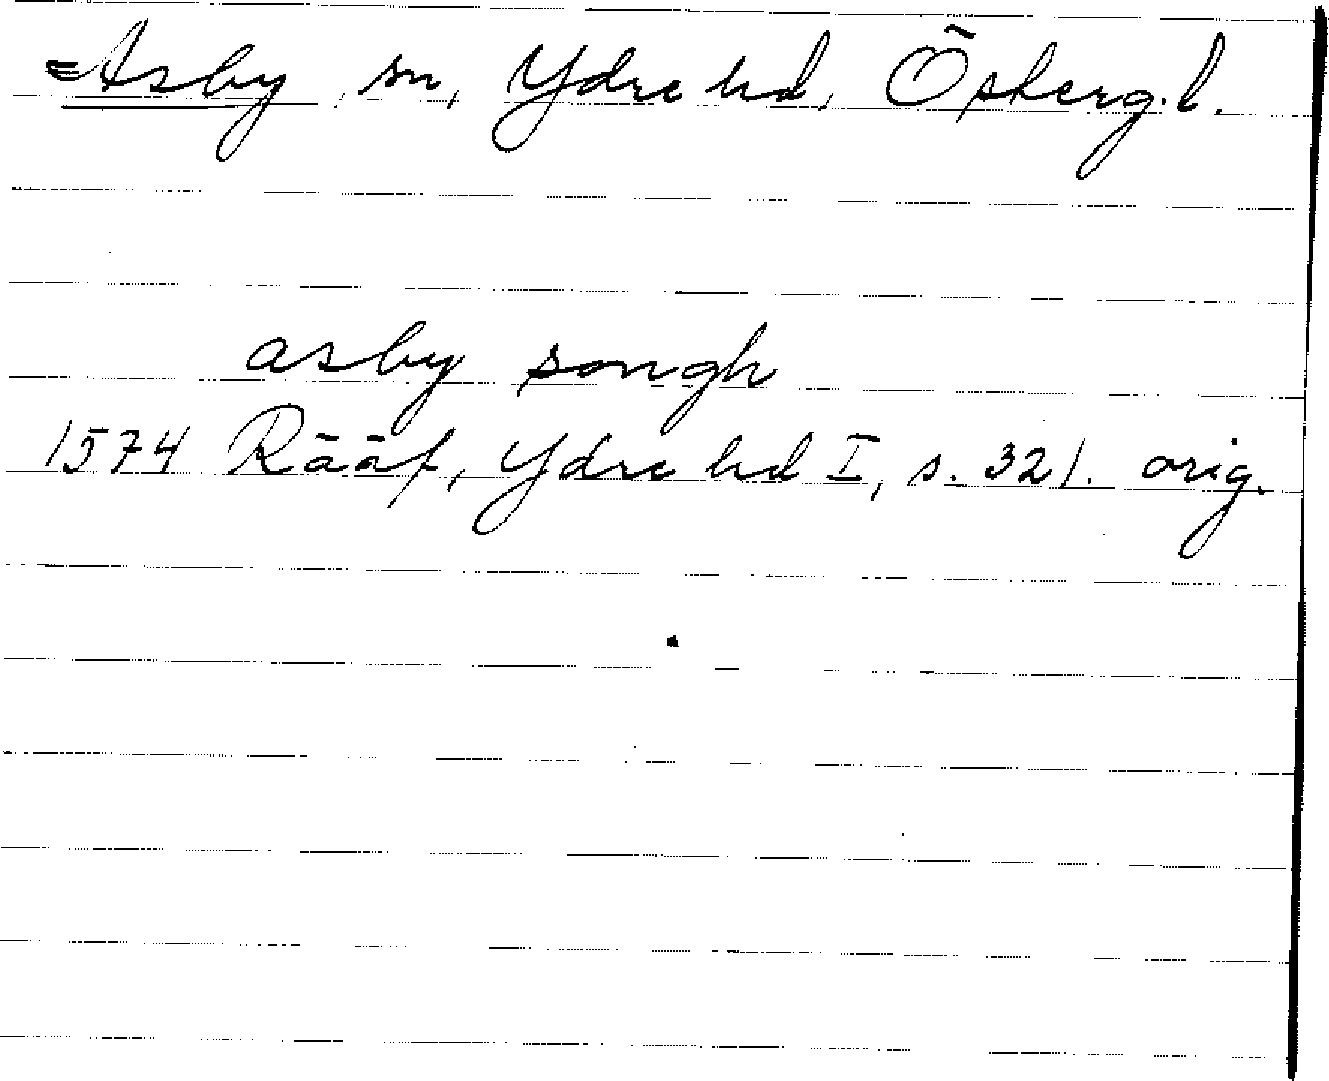 Asby sn, Ydre hd, Österg.l.
asby songh
1574 Rääf, Ydre hd I, s. 321. orig.